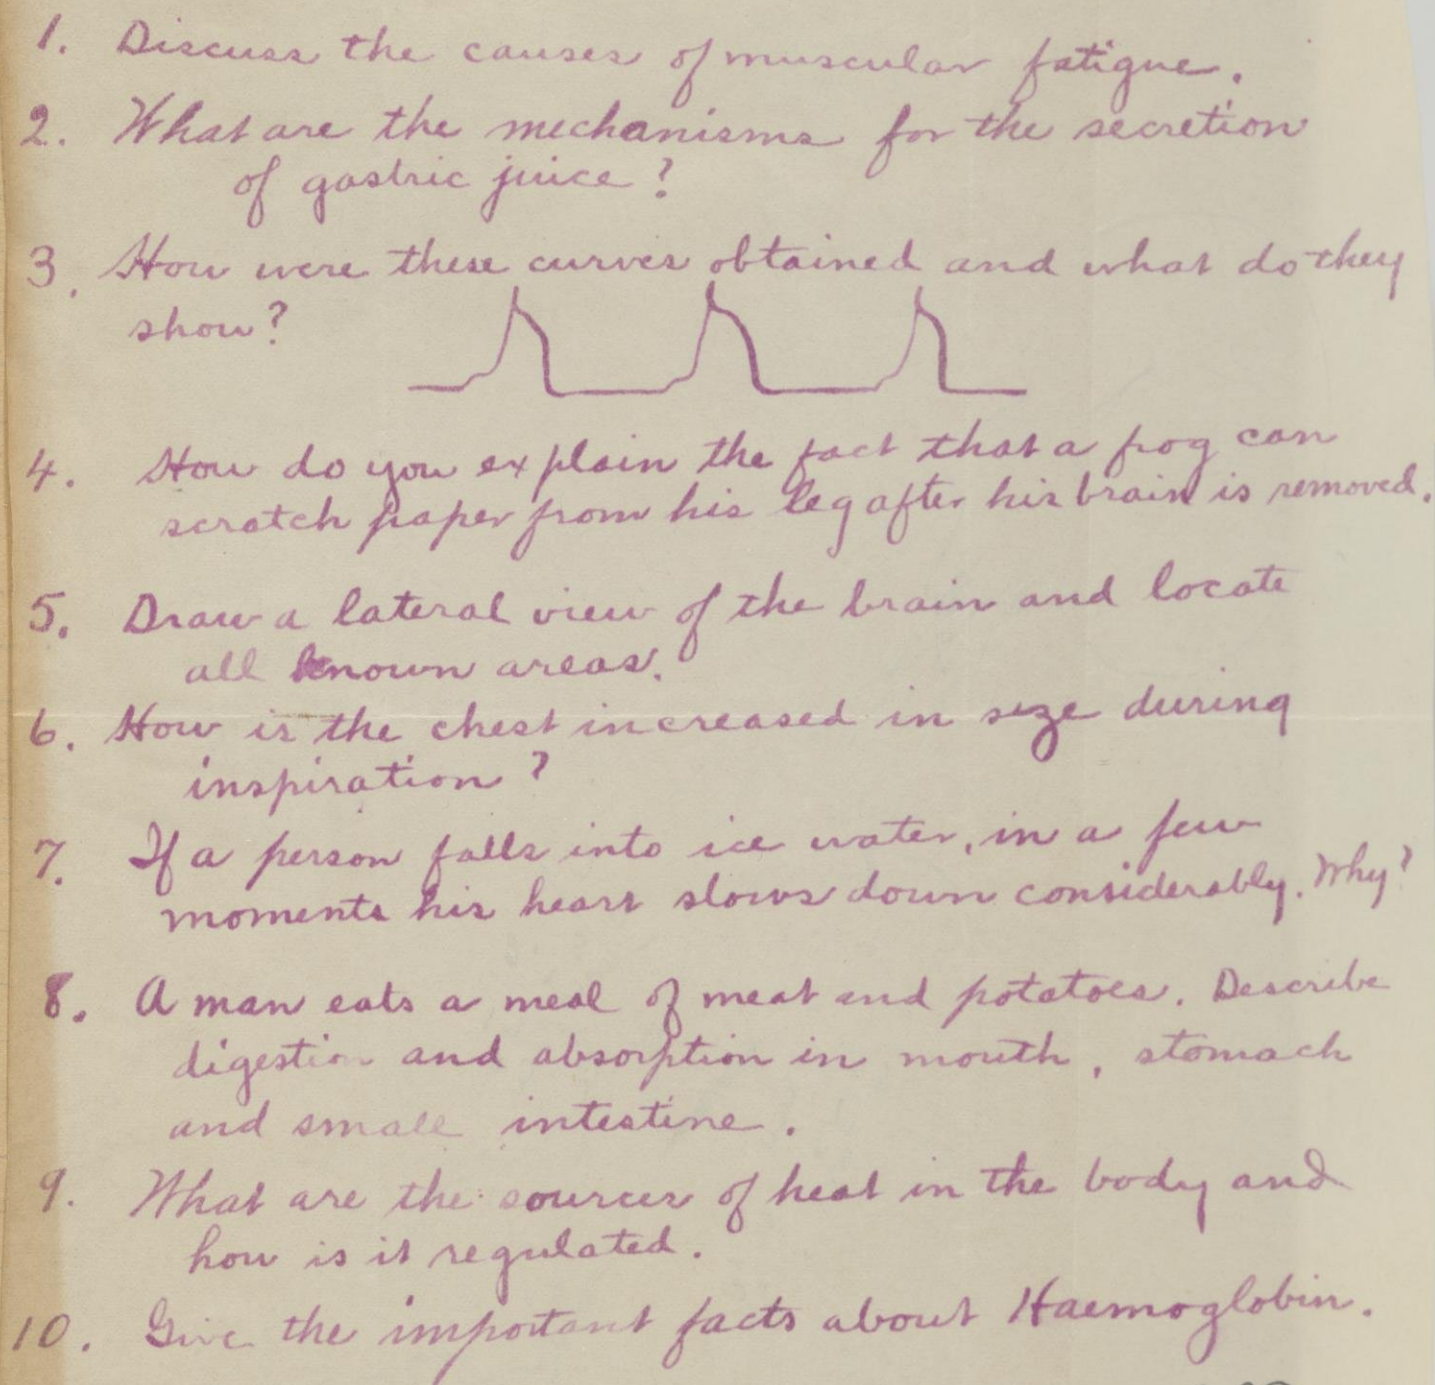 1. Discuss the causes of muscular fatigue.
2. What are the mechanisms for the secretion
of gastric juice?
3. How were these curves obtained and what do they
show?
4. How do you explain the fact that a frog can
scratch paper from his leg after his brain is removed.
5. Draw a lateral view of the brain and locate
all known areas.
6. How is the chest increased in size during
inspiration?
7. If a person falls into ice water, in a few
moments his heart slows down considerably. Why?
8. A man eats a meal of meat and potatoes. Describe
digestion and absorption in mouth, stomach
and small intestine.
9. What are the sources of heat in the body and
how is it regulated.
10. Give the important facts about Haemoglobin.